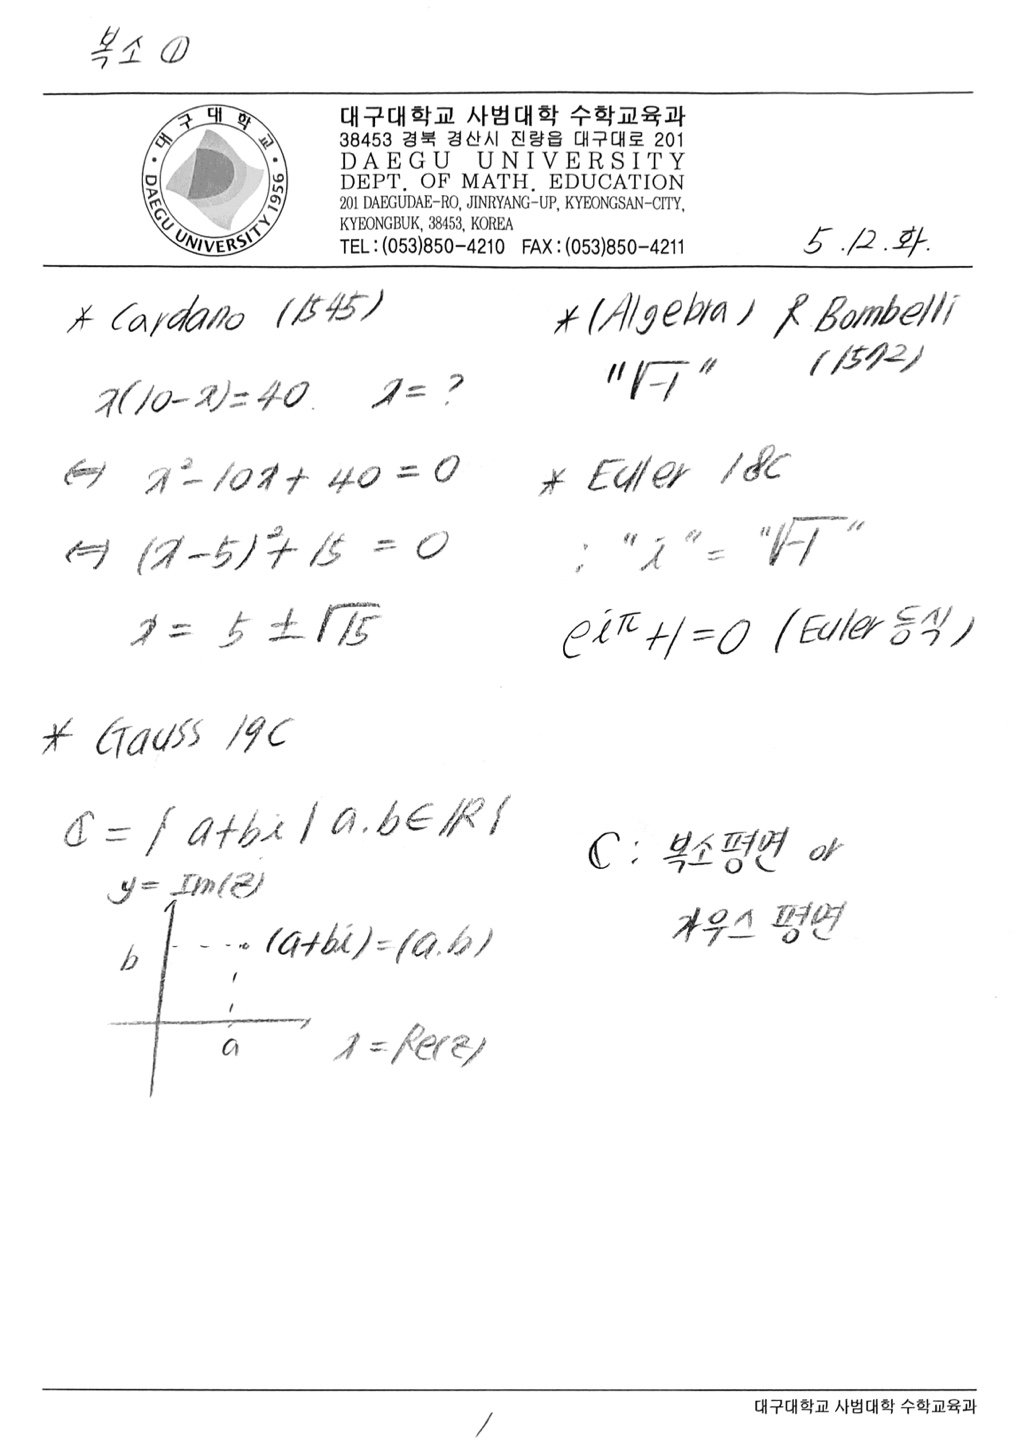 복소 ①
대구대학교
DAEGU UNIVERSITY 1956
대구대학교 사범대학 수학교육과
38453 경북 경산시 진량읍 대구대로 201
DAEGU UNIVERSITY
DEPT. OF MATH. EDUCATION
201 DAEGUDAE-RO, JINRYANG-UP, KYEONGSAN-CITY,
KYEONGBUK, 38453, KOREA
TEL:(053)850-4210 FAX:(053)850-4211
5.12.화.
* Cardano (1545)
x(10-x)=40. x=?
⇔ x²-10x+40=0
⇔ (x-5)²+15=0
x = 5 ± √15
* (Algebra) R Bombelli
(1572)
"√-1"
* Euler 18C
: "i" = "√-1"
e^{iπ}+1=0 (Euler 등식)
* Gauss 19C
ℂ = { a+bi | a.b∈ℝ}
y = Im(z)
b
(a+bi)=(a.b)
a
x = Re(z)
ℂ : 복소평면 or
가우스 평면
대구대학교 사범대학 수학교육과
1